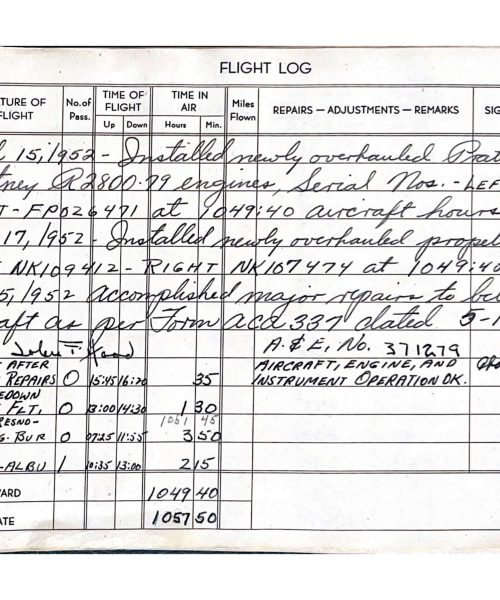 FLIGHT LOG
TURE OF FLIGHT No. of Pass. TIME OF FLIGHT Up Down TIME IN AIR Hours Min. Miles Flown REPAIRS — ADJUSTMENTS — REMARKS SIG
15, 1952 - Installed newly overhauled Prat
tney R2800-79 engines, Serial Nos. - LEF
T - FP026471 at 1049:40 aircraft hours
17, 1952 - Installed newly overhauled propel
NK109412 - RIGHT NK107474 at 1049:40
5, 1952 accomplished major repairs to
aft as per Form aca 337 dated 5-1
John F. A. & E. No. 371279
AFTER REPAIRS 0 15:45 16:20 35 AIRCRAFT, ENGINE, AND INSTRUMENT OPERATION OK.
EDOWN FLT. 0 13:00 14:30 1 30
RESNO- 1051 45
G. BUR 0 0725 11:55 3 50
-ALBU 1 10:35 13:00 2 15
WARD 1049 40
ATE 1057 50